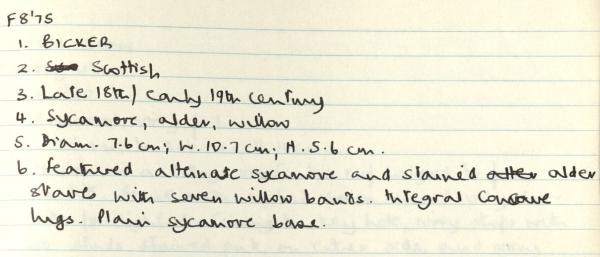 F8'75
1. BICKER
2. Scottish
3. Late 18th/early 19th century
4. Sycamore, alder, willow
5. Diam. 7.6 cm; W. 10.7 cm; H. 5.6 cm.
6. Feathered alternate sycamore and stained alder
staves with seven willow bands. Integral concave
lugs. Plain sycamore base.